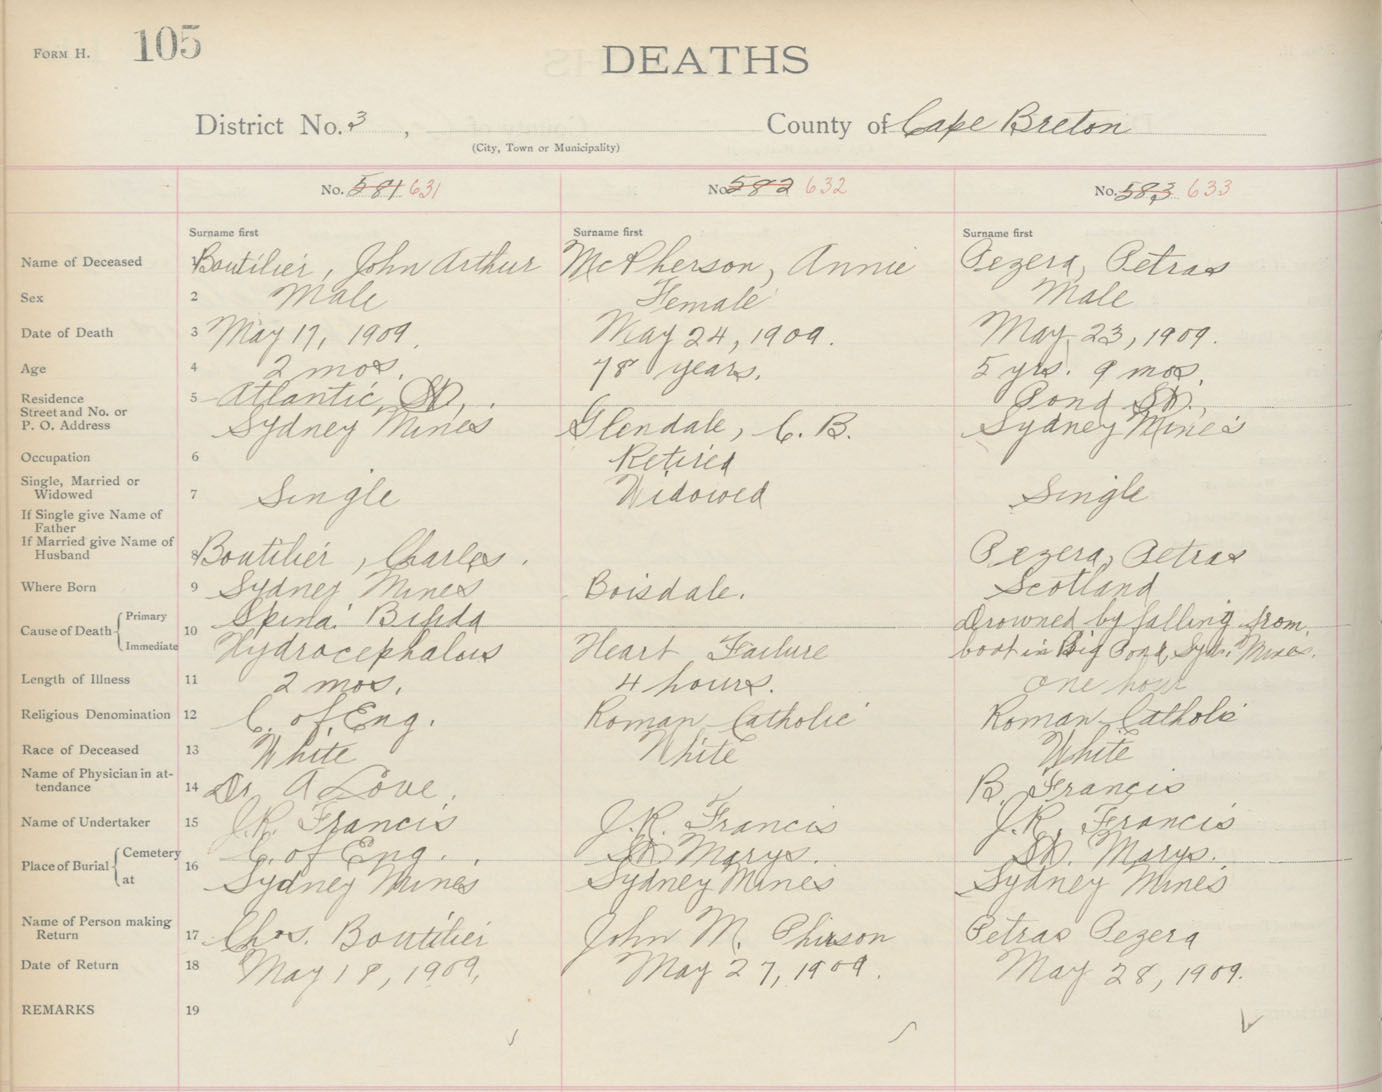 FORM H. 105
DEATHS
District No. 3 , County of Cape Breton
(City, Town or Municipality)
No. 581 631 No. 582 632 No. 583 633
Surname first Surname first Surname first
Name of Deceased 1 Boutilier, John Arthur McPherson, Annie Pezera, Petras
Sex 2 Male Female Male
Date of Death 3 May 17, 1909. May 24, 1909. May 23, 1909.
Age 4 2 mos. 78 years. 5 yrs. 9 mos.
Residence 5 Atlantic St., Pond St.,
Street and No. or
P. O. Address Sydney Mines Glendale, C. B. Sydney Mines
Occupation 6 Retired
Single, Married or
Widowed 7 Single Widowed Single
If Single give Name of
Father
If Married give Name of
Husband 8 Boutilier, Charles. Pezera, Petras
Where Born 9 Sydney Mines Boisdale. Scotland
Cause of Death Primary 10 Spina Bifida Drowned by falling from
Immediate Hydrocephalous Heart Failure boat in Big Pond, Syd. Mines.
Length of Illness 11 2 mos. 4 hours. one hour
Religious Denomination 12 C. of Eng. Roman Catholic Roman Catholic
Race of Deceased 13 White White White
Name of Physician in at-
tendance 14 Dr. A Love. B. Francis
Name of Undertaker 15 J.R. Francis J.R. Francis J.R. Francis
Place of Burial Cemetery 16 C. of Eng. St Marys. St. Marys.
at Sydney Mines Sydney Mines Sydney Mines
Name of Person making
Return 17 Chas. Boutilier John M. Phirson Petras Pezera
Date of Return 18 May 18, 1909. May 27, 1909. May 28, 1909.
REMARKS 19